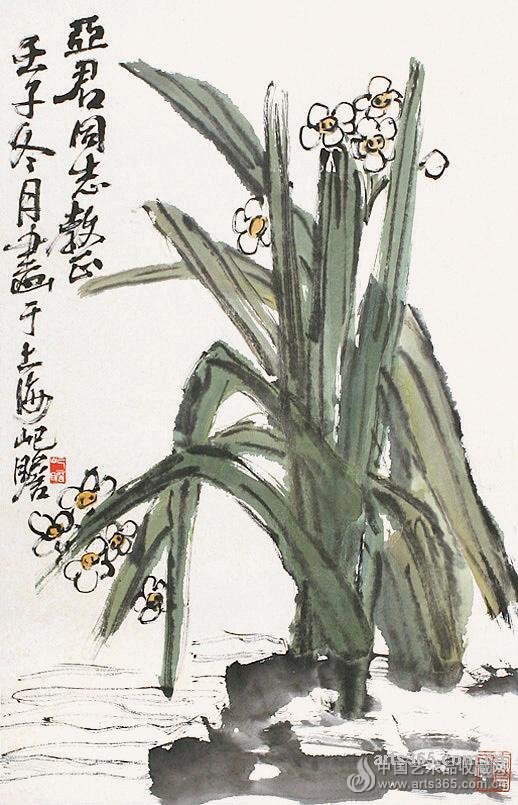 亞君同志教正
壬子冬月畫于上海屺瞻
屺瞻
中国艺术品收藏网
www.arts365.com